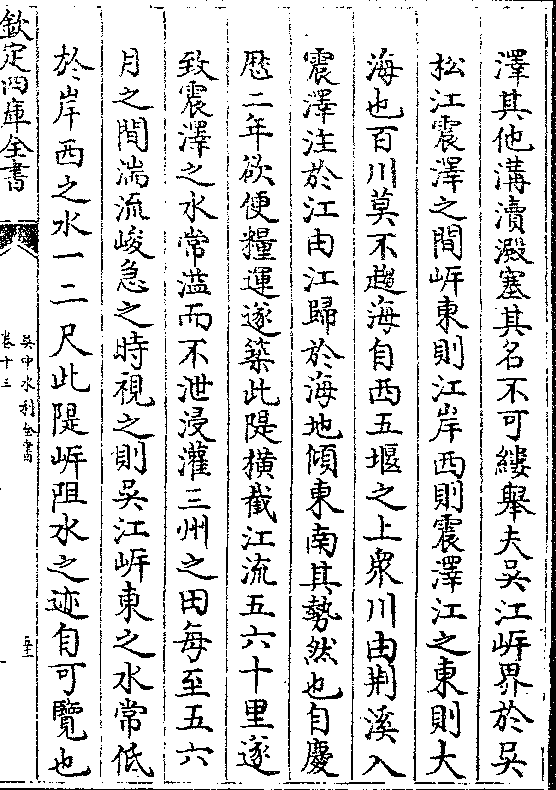 澤其他溝瀆澱塞其名不可縷舉夫吳江岍界於吳
松江震澤之間岍東則江岸西則震澤江之東則大
海也百川莫不趨海自西五堰之上衆川由荆溪入
震澤注於江由江歸於海地傾東南其勢然也自慶
厯二年欲便糧運遂築此隄橫截江流五六十里遂
致震澤之水常溢而不泄浸灌三州之田每至五六
月之間湍流峻急之時視之則吳江岍東之水常低
於岸西之水一二尺此隄岍阻水之迹自可覽也
欽定四庫全書
吳中水利全書
卷十三